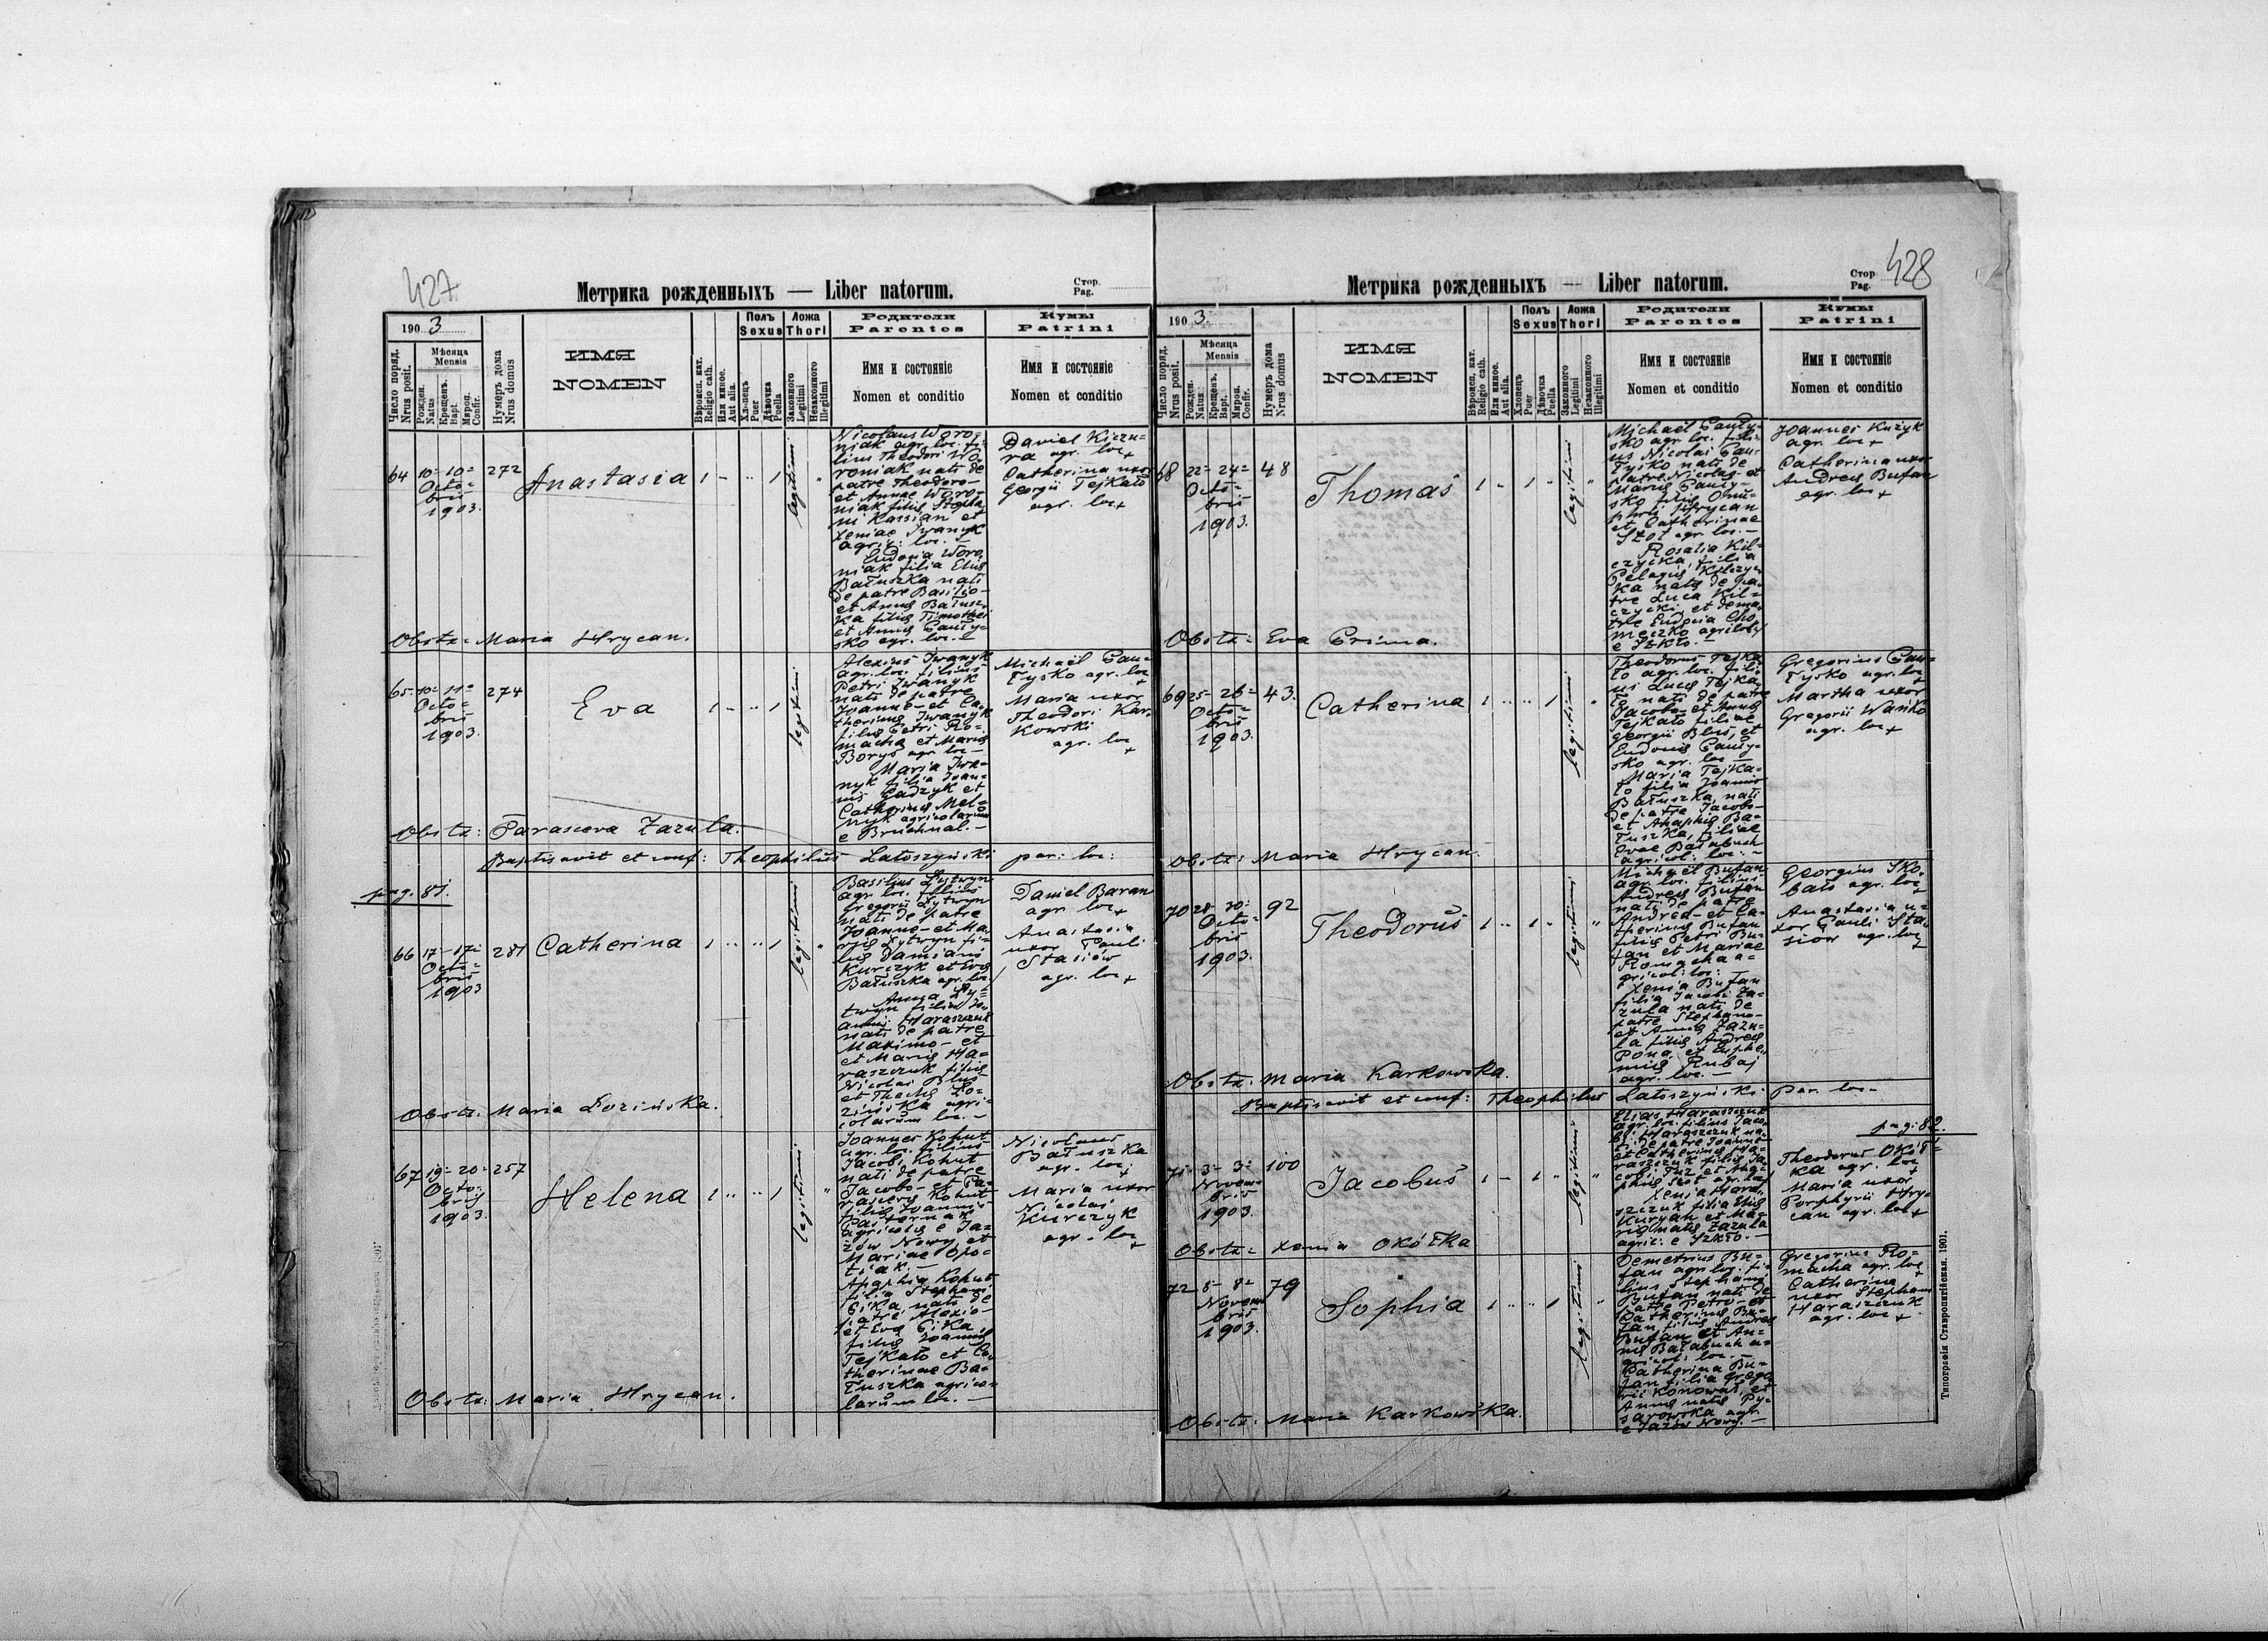 427
Метрика рожденныхъ — Liber natorum.
Стор.
Pag.
190 3
Число поряд.
Nrus posit.
Мѣсяца
Mensis
Рожден.
Natus
Крещенъ.
Bapt.
Мирοп.
Confir.
Нумеръ дома
Nrus domus
ИМЯ
NOMEN
Вѣроисп. кат.
Religio cath.
Или иное.
Aut alia.
Полъ
Sexus
Хлопецъ
Puer
Дѣвочка
Puella
Ложа
Thori
Законного
Legitimi
Незаконного
Illegitimi
Родители
Parentes
Имя и состояніе
Nomen et conditio
Кумы
Patrini
Имя и состояніе
Nomen et conditio
64 10- 10-
Octo-
bris
1903.
272
Anastasia
legitimi
Nicolaus Woro-
niak agr. loc. fi-
lius Theodori Wo-
roniak nati de
patre Theodoro-
et Annae Woro-
niak filiae Stepha-
ni Kassian et
Xeniae Iwanyk
agric: loc. -
Eudoxia Woro-
niak filia Eliae
Bałuszka nati
de patre Basilio-
et Annae Bałusz-
ka filiae Timothei
et Annae Pauły-
sko agr. loc. -
Daniel Kiczu-
ra agr. loc +
Catherina uxor
Georgii Tejkało
agr. loc +
Obstz= Maria Hrycan.
65 10- 11-
Octo-
bris
1903.
274
Eva
legitimi
Alexius Iwanyk
agr. loc. filius
Petri Iwanyk
nati de patre
Joanne- et Ca-
therinae Iwanyk
filiae Petri Ro-
macha et Mariae
Borys agr. loc -
Maria Iwa-
nyk filia Joan-
nis Gadzyk et
Catherinae Mel-
nyk agricolarum
e Bruchnal. -
Michaël Pau-
łysko agr. loc +
Maria uxor
Theodori Kar-
kowski
agr. loc +
Obstz: Parasceva Zazula.
Baptisavit et conf: Theophilus Łatoszyński par: loc:
pag. 81.
66 17- 17-
Octo-
bris
1903
281
Catherina
legitimi
Basilius Łytwyn
agr. loc. filius
Gregorii Łytwyn
nati de patre
Joanne- et Ma-
riae Łytwyn fi-
liae Damiani
Kurczyk et Evae
Bałuszka agr. loc
Anna Ły-
twyn filia Jo-
annis Haraszczuk
nati de patre
Maximo- et
et Mariae Ha-
raszczuk filiae
Nicolai Blus
et Theclae Ło-
zińska agri-
colarum loc. -
Daniel Baran
agr. loc +
Anastasia
uxor Pauli
Stasiów
agr. loc +
Obstz. Maria Łozińska.
67 19- 20-
Octo-
bris
1903.
257
Helena
legitimi
Joannes Kohut
agr. loc. filius
Jacobi Kohut
nati de patre
Jacobo- et Pa-
rascevae Kohut
filiae Joannis
Pasternak
agricolae e Ja-
żów Nowy, et
Mariae Opo-
tiak. -
Ahaphia Kohut
filia Stephani
Cika, nati de
patre Alexio-
et Evae Cika
filiae Joannis
Tejkało et Ca-
therinae Ba-
łuszka agrico-
larum loc. -
Nicolaus
Bałuszka
agr. loc +
Maria uxor
Nicolai
Kurczyk
agr. loc +
Obstz: Maria Hrycan.
428
Метрика рожденныхъ — Liber natorum.
Стор.
Pag.
190 3.
Число поряд.
Nrus posit.
Мѣсяца
Mensis
Рожден.
Natus
Крещенъ.
Bapt.
Мироп.
Confir.
Нумеръ дома
Nrus domus
ИМЯ
NOMEN
Вѣроисп. кат.
Religio cath.
Или иное.
Aut alia.
Полъ
Sexus
Хлопецъ
Puer
Дѣвочка
Puella
Ложа
Thori
Законного
Legitimi
Незаконного
Illegitimi
Родители
Parentes
Имя и состояніе
Nomen et conditio
Кумы
Patrini
Имя и состояніе
Nomen et conditio
68 22- 24-
Octo-
bris
1903.
48
Thomas
legitimi
Michaël Pauły-
sko agr. loc. fili-
us Nicolai Pau-
łysko nati de
patre Nicolao- et
Mariae Pauły-
sko filiae Onu-
phrii Hrycan
et Catherinae
Szot agr. loc. -
Rosalia Kil-
czycka, filia
Pelagiae Kilczyc-
ka natae de pa-
tre Luca Kil-
czycki et de ma-
tre Eudoxia Cho-
meczko
e Szkło. -
Joannes Kużyk
agr. loc +
Catherina uxor
Andreae Bufan
agr. loc +
Obstz: Eva Prima.
69 25- 26-
Octo-
bris
1903.
43.
Catherina
legitimi
Theodorus Tejka-
ło agr. loc. fili-
us Lucae Tejka-
ło nati de patre
Jacobo- et Annae
Tejkało filiae
Georgii Blus, et
Eudoxiae Pauły-
sko agr. loc -
Maria Tejka-
ło filia Joannis
Bałuszka, nati
de patre Jacobo-
et Ahaphiae Ba-
łuszka, filiae
Evae Bałabuch
agricol: loc: -
Gregorius Pau-
łysko agr. loc +
Martha uxor
Gregorii Wańko
agr. loc +
Obstz: Maria Hrycan.
70 28- 30-
Octo-
bris
1903.
92
Theodorus
legitimi
Michaël Bufan
agr. loc. filius
Andreae Bufan
nati de patre
Andrea- et Ca-
therinae Bufan
filiae Petri Bu-
fan et Mariae
Romacha a-
gricol: loc:
Xenia Bufan
filia Jacobi Za-
zula nati de
patre Stephano-
et Annae Zazu-
la filiae Andreae
Pona, et Euphe-
miae Rubaj
agr. loc. -
Georgius Sko-
bało agr. loc +
Anastasia u-
xor Pauli Sta-
siów agr. loc +
Obstz: Maria Karkowska.
Baptisavit et conf: Theophilus Łatoszyński par. loc-
pag: 82.
71 3- 3-
Novem-
bris
1903.
100
Jacobus
legitimi
Elias Haraszczuk
agr. loc. filius Jaco-
bi Haraszczuk na-
ti de patre Joanne-
et Catherinae Ha-
raszczuk filiae Ja-
cobi Tuz et Aha-
phiae Szot agr. loc
Xenia Hara-
szczuk filia Eliae
Kuryan et Ma-
riae natae Zazula
agric: e Szkło. -
Theodorus Okół-
ka agr. loc +
Maria uxor
Porphyrii Hry-
can agr. loc +
Obstz= Xenia Okółka
72 8- 8-
Novem-
bris
1903.
79
Sophia
legitimi
Demetrius Bu-
fan agr. loc. fi-
lius Stephani
Bufan nati de
patre Petro- et
Catherinae Bu-
fan filiae Andreae
Bufan et An-
nae Bałabuch a-
gricol: loc. -
Catherina Bu-
fan filia Grego-
rii Konował, et
Annae natae Py-
sarowska agr.
e Jażów Nowy. -
Gregorius Ro-
macha agr. loc +
Catherina
uxor Stephani
Haraszczuk
agr. loc +
Obstz: Maria Karkowska.
Типографія Ставропигійская. 1901.